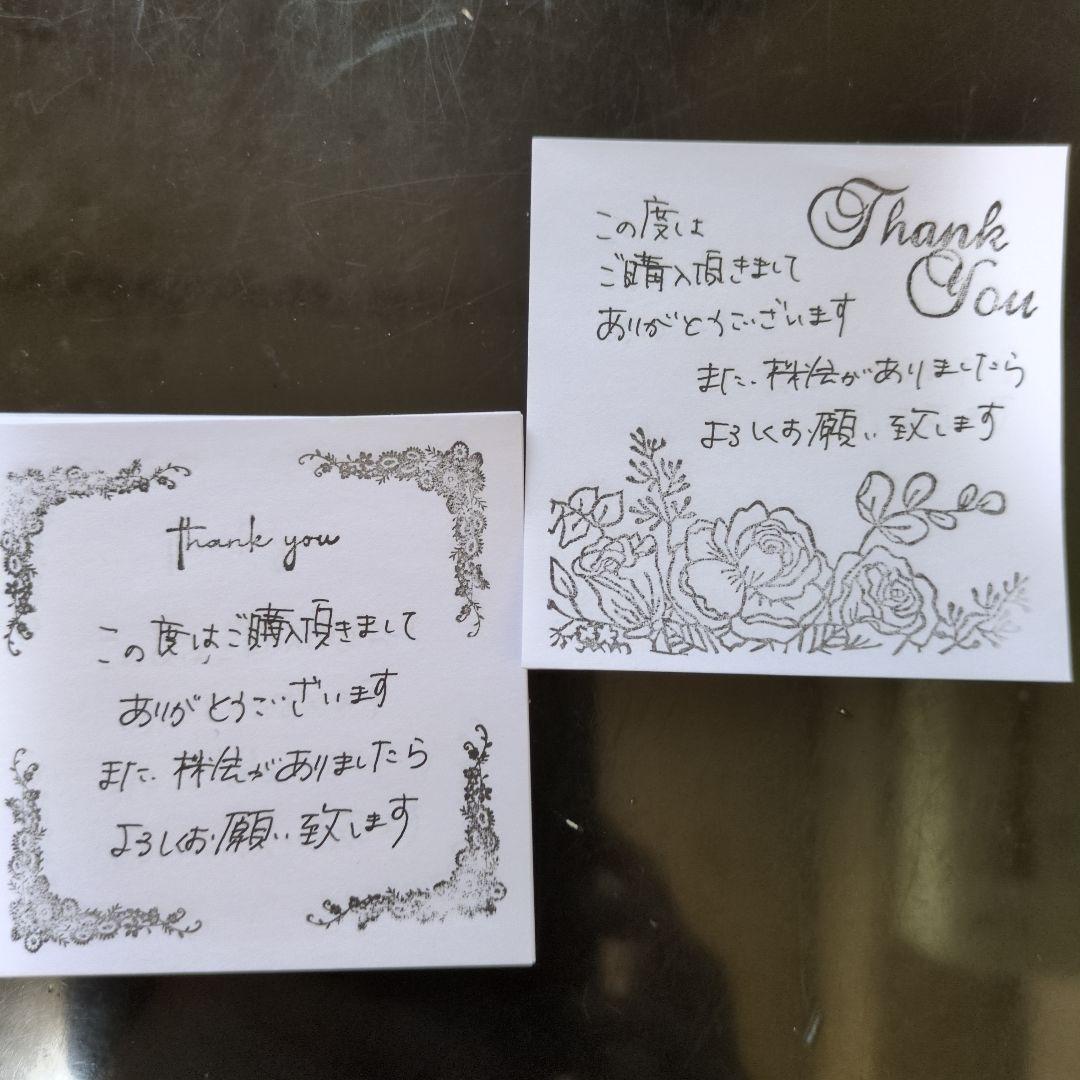 thank you
この度はご購入頂きまして
ありがとうございます
また、機会がありましたら
よろしくお願い致します
Thank
You
この度は
ご購入頂きまして
ありがとうございます
また、機会がありましたら
よろしくお願い致します